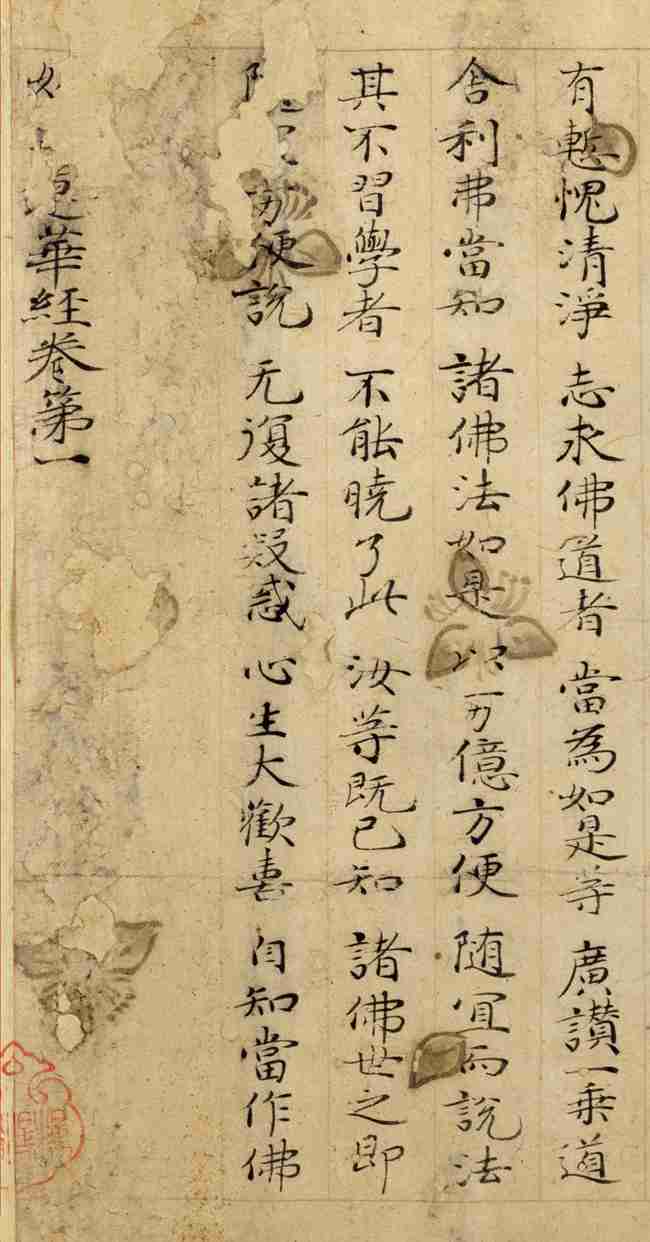 有慙愧清淨 志求佛道者 當為如是等 廣讃一乗道
舎利弗當知 諸佛法如是 以万億方便 随冝而說法
其不習學者 不能曉了此 汝等既已知 諸佛世之師
方便說 无復諸疑惑 心生大歡喜 自知當作佛
蓮華經卷第一